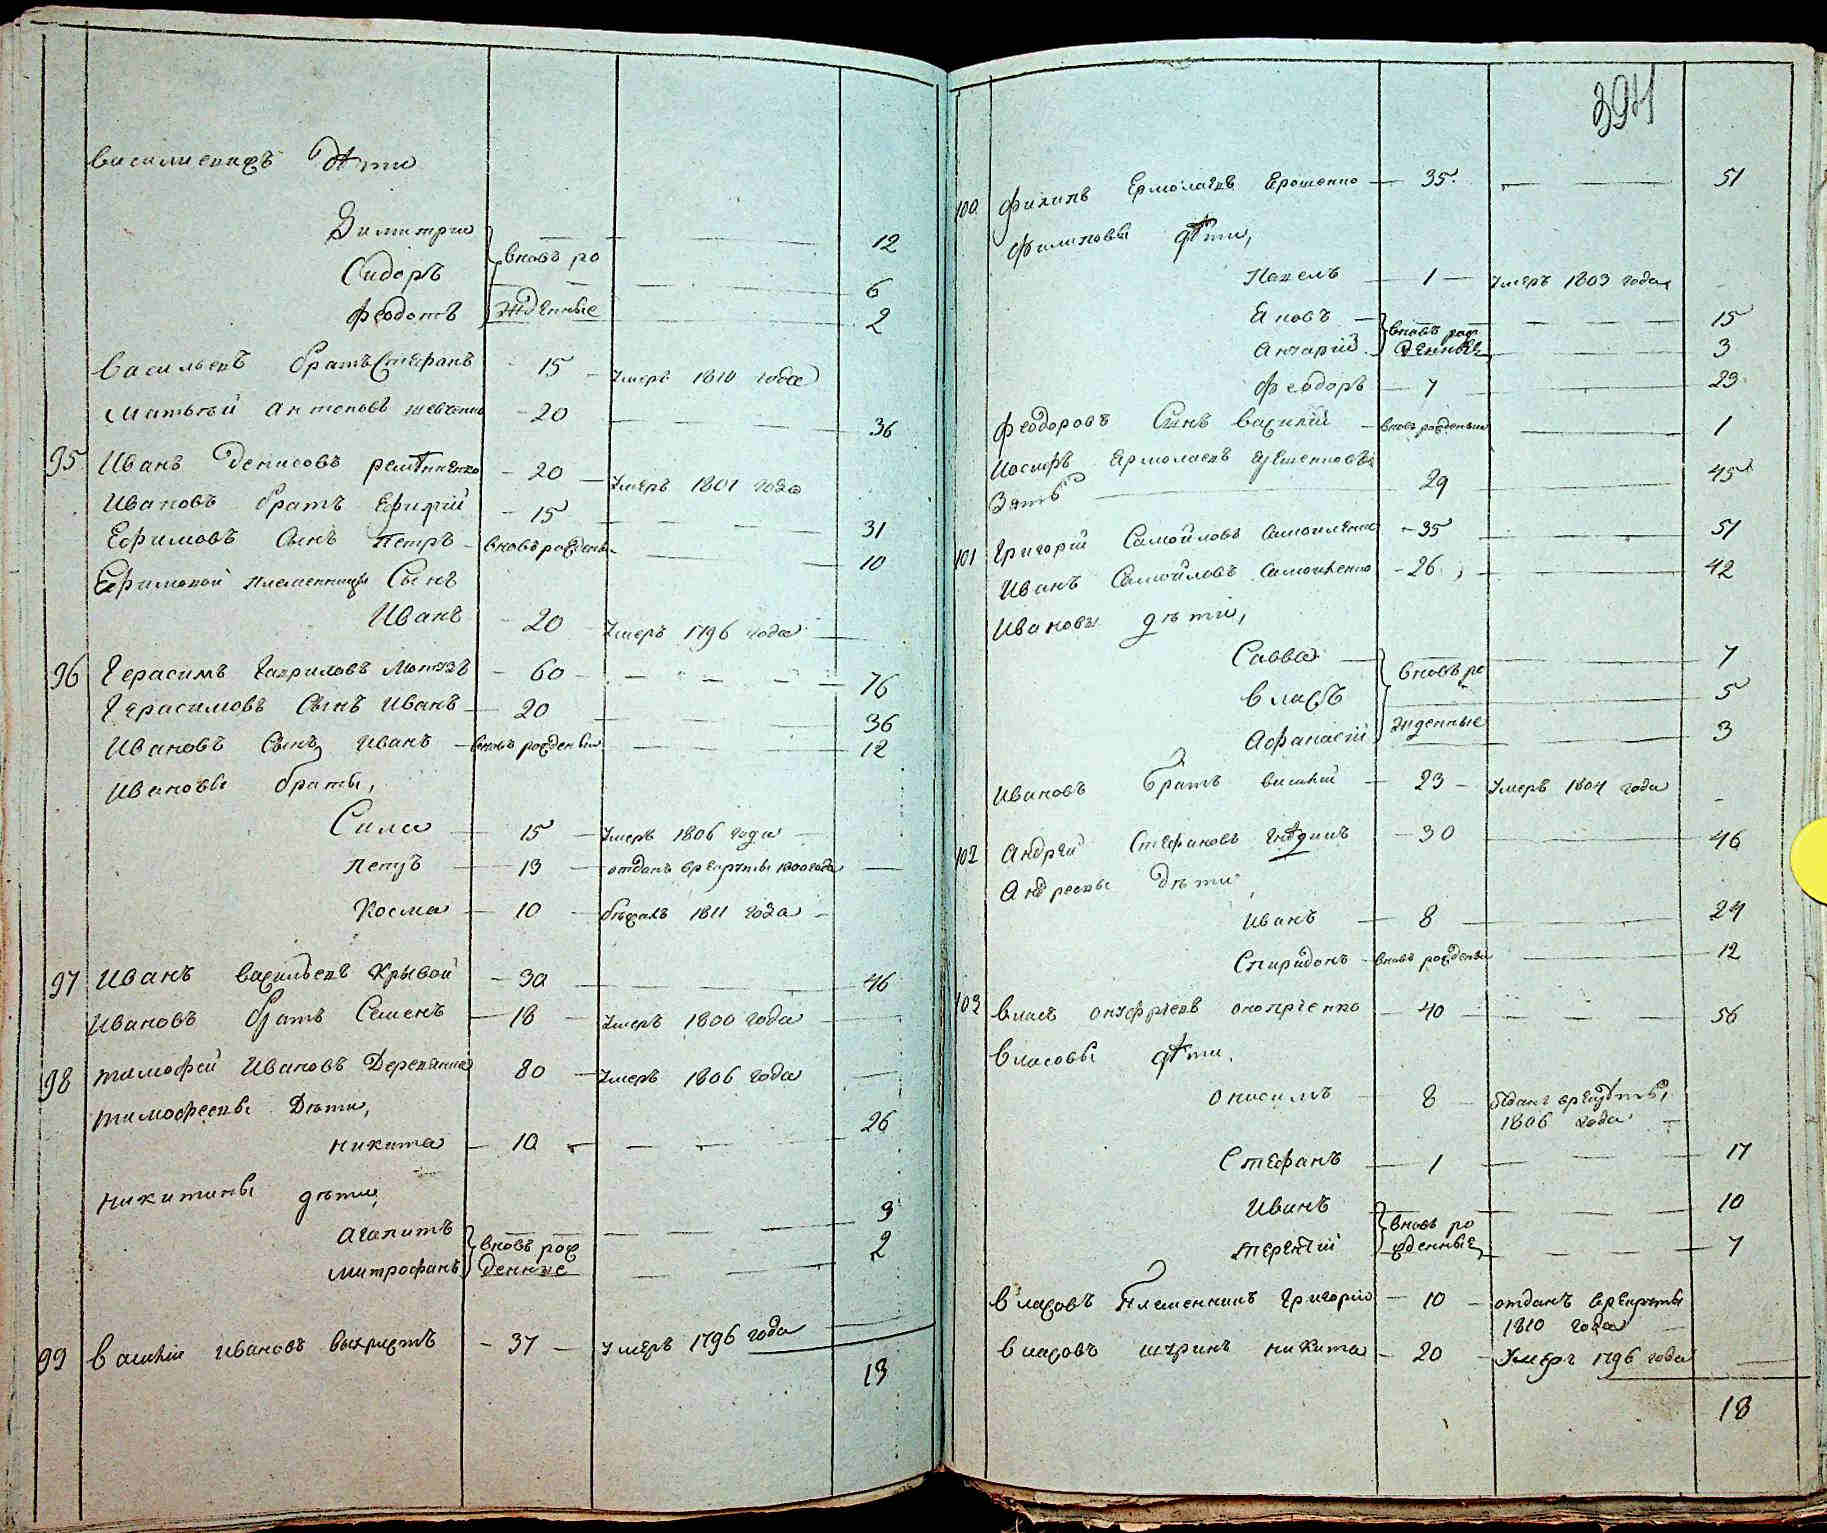 Василиевихъ Дѣти
Димитрий 12
Сидоръ } вновь ро 6
Феодотъ жденные 2
Васильевъ братъ Стефанъ - 15 - Умеръ 1810 года
Матвѣй Антоновъ Шевченко - 20 36
95 Иванъ Денисовъ - 20 - Умеръ 1801 года
Ивановъ братъ Ефимій - 15 31
Ефимовъ Сынъ Петръ - вновь рожденъ 10
Ефимовой племенницы Сынъ
Иванъ - 20 - Умеръ 1796 года
96 Герасимъ Гавриловъ - 60 76
Герасимовъ Сынъ Иванъ - 20 36
Ивановъ Сынъ Иванъ - вновь рожденный 12
Ивановы браты,
Сила - 15 - Умеръ 1806 года
Петръ - 13 - отданъ врекруты 1800 года
Косма - 10 - бѣжалъ 1811 года
97 Иванъ Васильевъ Кривой - 30 46
Ивановъ братъ Семенъ - 18 - Умеръ 1800 года
98 Тимофей Ивановъ - 80 - Умеръ 1806 года
Тимофеевы Дѣти,
Никита - 10 26
Никитины дѣти
Агапитъ } вновь рож 3
Митрофанъ денные 2
99 Василій Ивановъ - 37 - Умеръ 1796 года
13
394
100 Филипъ Ермолаевъ Ерошенко - 35 51
Филиповы дѣти,
Павелъ - 1 - Умеръ 1803 года
Яковъ } вновь рож 15
денные 3
Феодоръ - 7 23
Феодоровъ Сынъ Василій - вновь рожденный 1
Иосифъ Ермолаевъ
Зять 29 45
101 Григорій Самойловъ Самойленко - 35 51
Иванъ Самойловъ Самойленко - 26 42
Ивановы дѣти,
Савва } вновь ро 7
Власъ 5
Афанасій жденные 3
Ивановъ братъ Василій - 23 - Умеръ 1804 года
102 Андрей Стефановъ - 30 46
Андреевы Дѣти
Иванъ - 8 24
Спиридонъ - вновь рожденный 12
103 Власъ Онуфріевъ - 40 56
Власовы дѣти.
Онисимъ - 8 - отданъ врекруты,
1806 года
Стефанъ - 1 17
Иванъ } вновь ро 10
Терентій жденные 7
Власовъ Племенникъ Григорій - 10 - отданъ врекруты
1810 года
Власовъ шуринъ Никита - 20 - Умеръ 1796 года
18